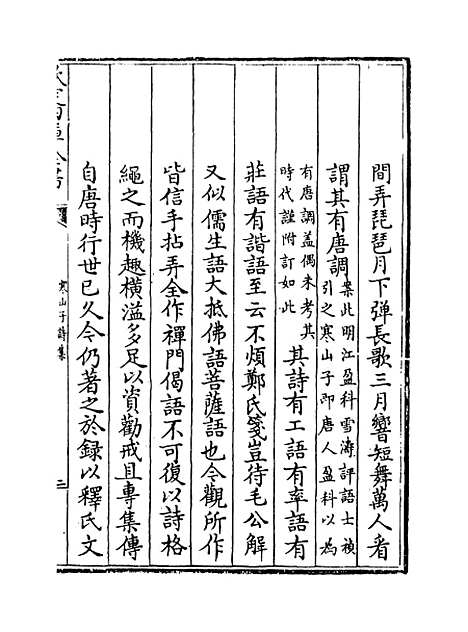 間弄琵琶月下彈長歌三月響短舞萬人看
謂其有唐調案此明江盈科雪濤評語士禎
引之寒山子即唐人盈科以為
有唐調蓋偶未考其
時代謹附訂如此其詩有工語有率語有
莊語有諧語至云不煩鄭氏箋豈待毛公解
又似儒生語大抵佛語菩薩語也今觀所作
皆信手拈弄全作禪門偈語不可復以詩格
繩之而機趣橫溢多足以資勸戒且專集傳
自唐時行世已久今仍著之於録以釋氏文
寒山子詩集
二